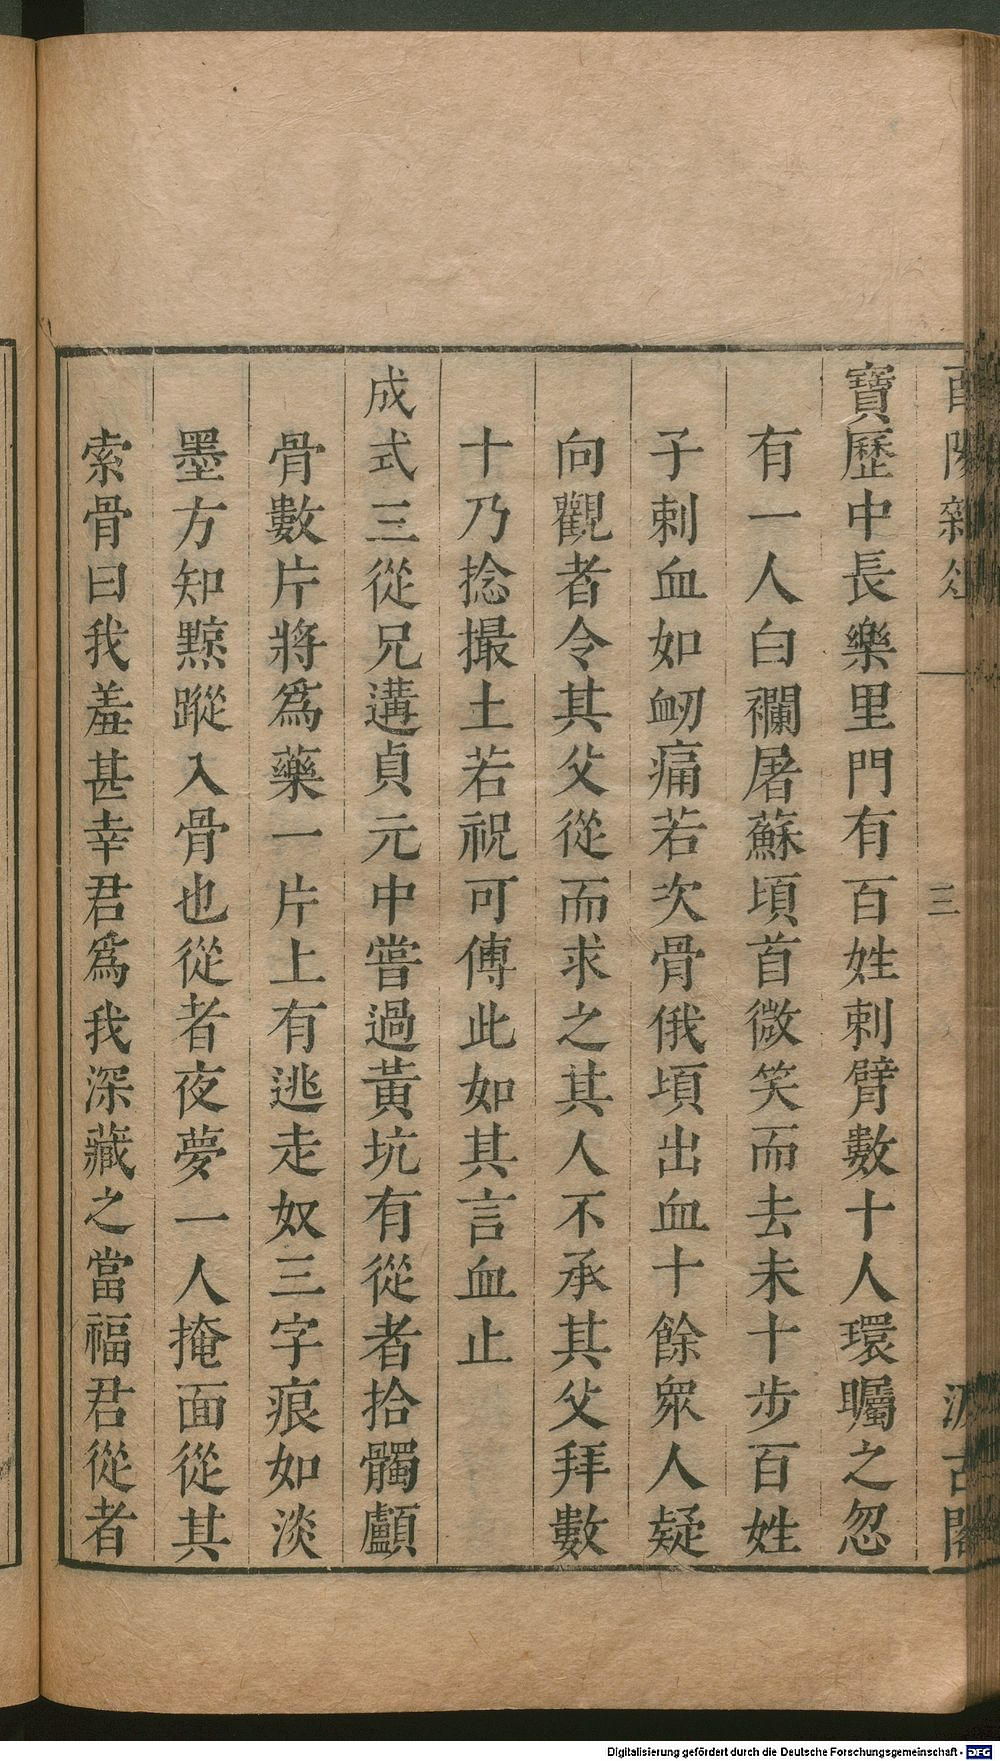 酉陽雜俎
三
汲古閣
寶歷中長樂里門有百姓刺臂數十人環矚之忽
有一人白襴屠蘇頃首微笑而去未十步百姓
子刺血如衂痛若次骨俄頃出血十餘衆人疑
向觀者令其父從而求之其人不承其父拜數
十乃捻撮土若祝可傅此如其言血止
成式三從兄遘貞元中嘗過黃坑有從者拾髑顱
骨數片將爲藥一片上有逃走奴三字痕如淡
墨方知黥蹤入骨也從者夜夢一人掩面從其
索骨曰我羞甚幸君爲我深藏之當福君從者
Digitalisierung gefördert durch die Deutsche Forschungsgemeinschaft - DFG